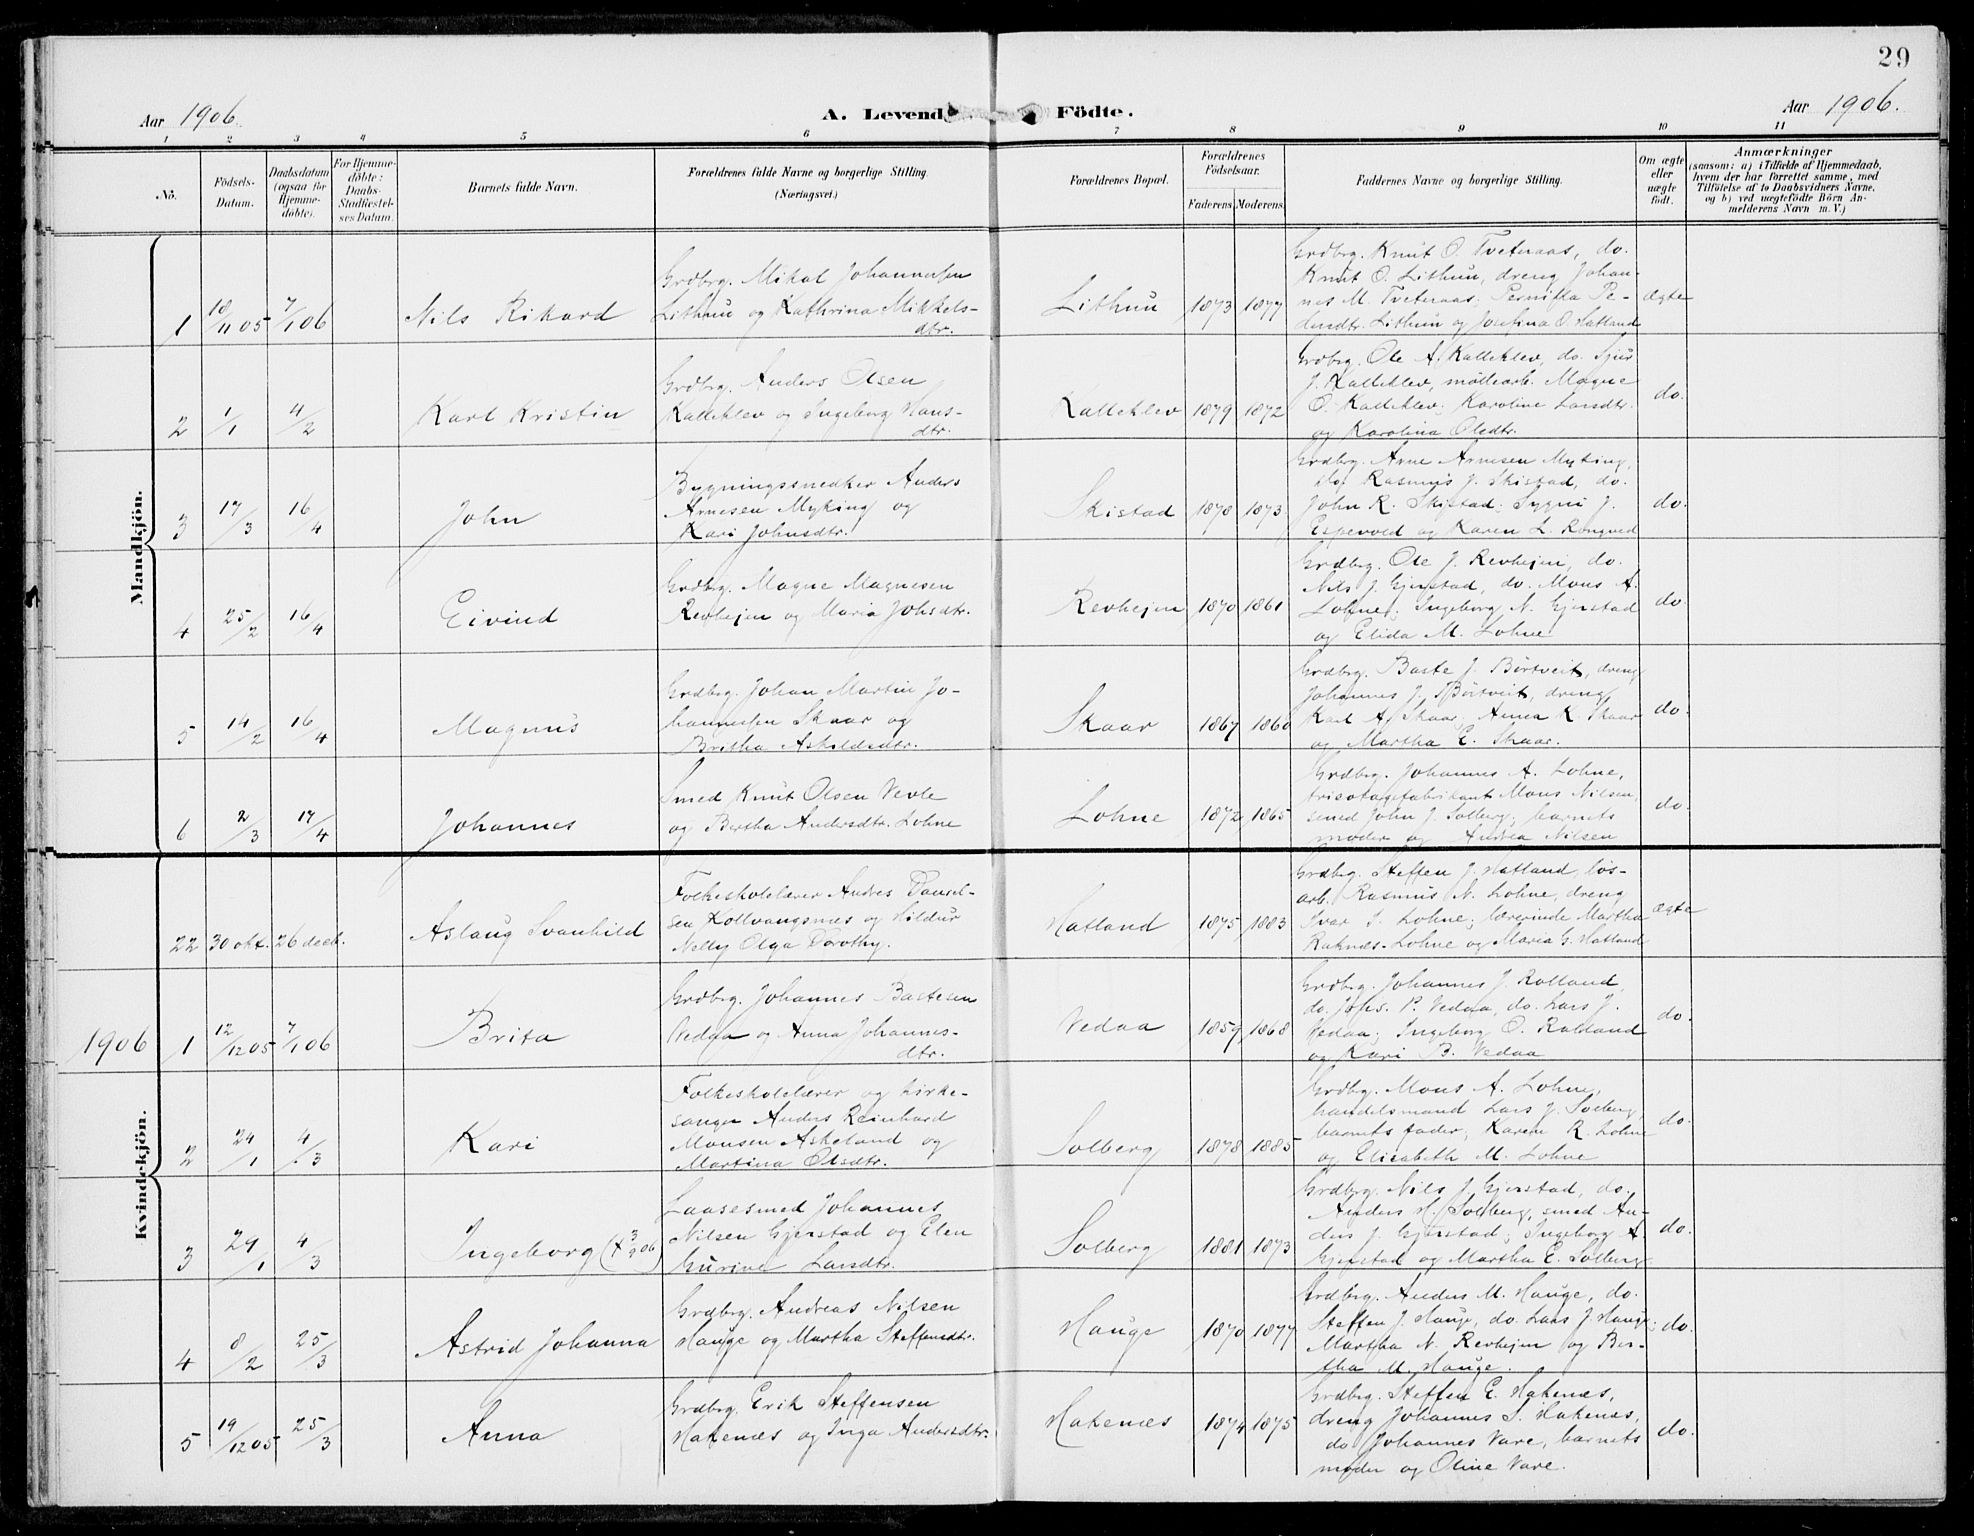 29
Aar 1906.
A. Levend Födte.
Aar 1906.
1 2 3 4 5 6 7 8 9 10 11
No.
Födsels-Datum.
Daabsdatum (ogsaa för Hjemmedöbte).
For Hjemmedöbte: Daabs-Stadfæstelses Datum.
Barnets fulde Navn.
Forældrenes fulde Navne og borgerlige Stilling. (Næringsvei.)
Forældrenes Bopæl.
Forældrenes Födselsaar.
Faderens. Moderens.
Faddernes Navne og borgerlige Stilling.
Om ægte eller uægte födt.
Anmærkninger
(saasom: a) i Tilfælde af Hjemmedaab,
hvem der har forrettet samme, med
Tilföielse af to Daabsvidners Navne.
og b) ved uægtefödte Börn An-
melderens Navn m. V.)
Mandkjön.
1 18/11 05 7/1 06 Nils Rikard
Grdbrg. Mikal Johannessen
Lithun og Kathrina Mikkels-
dtr.
Lithun 1873 1877
Grdbrg. Knut O. Tveteraas, do.
Knut O. Lithun, dreng Johan-
nes M. Tveteraas; Pernilla Pe-
dersdtr. Lithun og Josefina O. Hatland
ægte
2 1/1 4/2 Karl Kristin
Grdbrg. Anders Olsen
Kalleklev og Ingeborg Hans-
dtr.
Kalleklev 1879 1872
Grdbrg. Ole A. Kalleklev, do. Sjur
J. Kalleklev, møllearb. Magne
O. Kalleklev; Karoline Larsdtr.
og Karolina Olsdtr.
do.
3 17/3 16/4 John
Bygningssnedker Anders
Arnesen Myking og
Kari Johnsdtr.
Skistad 1878 1873
Grdbrg. Arne Arnesen Myking,
do. Rasmus J. Skistad, do.
John R. Skistad; Sygni J.
Espevold og Karen L. Rongved
do.
4 25/2 16/4 Eivind
Grdbrg. Magne Magnesen
Revhejen og Maria Johsdtr.
Revhejen 1870 1861
Grdbrg. Ole J. Revhejen, do.
Nils J. Gjerstad, do. Mons A.
Lohne; Ingeborg N. Gjerstad
og Elida M. Lohne
do.
5 14/2 16/4 Magnus
Grdbrg. Johan Martin Jo-
hannessen Skaar og
Britha Askildsdtr.
Skaar 1867 1860
Grdbrg. Baste J. Børtveit, dreng
Johannes J. Børtveit, dreng
Karl A. Skaar; Anna K. Skaar
og Martha E. Skaar.
do.
6 2/3 17/4 Johannes
Smed Knut Olsen Vevle
og Bertha Andersdtr. Lohne
Lohne 1872 1865
Grdbrg. Johannes A. Lohne,
trikotagefabrikant Mons Nilsen,
smed John J. Solberg; barnets
moder og Andrea Nilsen
do.
Kvindekjön.
22 30 okt. 26 decb. Aslaug Svanhild
Folkeskolelærer Andres Daniel-
sen Kollvangsnes og Hildur
Nelly Olga Dorothy.
Hatland 1875 1883
Grdbrg. Steffen J. Hatland, løs-
arb. Rasmus N. Lohne, dreng
Ivar J. Lohne; lærerinde Martha
Raknæs-Lohne og Maria G. Hatland
ægte
1906 1 12/12 05 7/1 06 Brita
Grdbrg. Johannes Bastesen
Vedaa og Anna Johannes-
dtr.
Vedaa 1859 1868
Grdbrg. Johannes J. Rolland,
do. Johs. P. Vedaa, do. Lars J.
Vedaa; Ingeborg O. Rolland
og Kari B. Vedaa
do.
2 24/1 4/3 Kari
Folkeskolelærer og kirke-
sanger Anders Reinhard
Monsen Askeland og
Martina Olsdtr.
Solberg 1878 1885
Grdbrg. Mons A. Lohne,
handelsmand Lars J. Solberg,
barnets fader; Karen R. Lohne
og Elisabeth M. Lohne
do.
3 29/1 4/3 Ingeborg († 3/9 06)
Laasesmed Johannes
Nilsen Gjerstad og Elen
Gurine Larsdtr.
Solberg 1881 1873
Grdbrg. Nils J. Gjerstad, do.
Anders H. Solberg, smed An-
ders J. Gjerstad; Ingeborg A.
Gjerstad og Martha E. Solberg
do.
4 8/2 25/3 Astrid Johanna
Grdbrg. Andreas Nilsen
Hauge og Martha Steffensdtr.
Hauge 1870 1877
Grdbrg. Anders M. Hauge, do.
Steffen J. Hauge, do. Lars J. Hauge;
Martha N. Revhejen og Ber-
tha M. Hauge.
do.
5 19/12 05 25/3 Anna
Grdbrg. Erik Steffensen
Hakenæs og Inga Andersdtr.
Hakenæs 1874 1875
Grdbrg. Steffen E. Hakenæs,
dreng Johannes S. Hakenæs,
do Johannes Vare, barnets
moder og Oline Vare.
do.